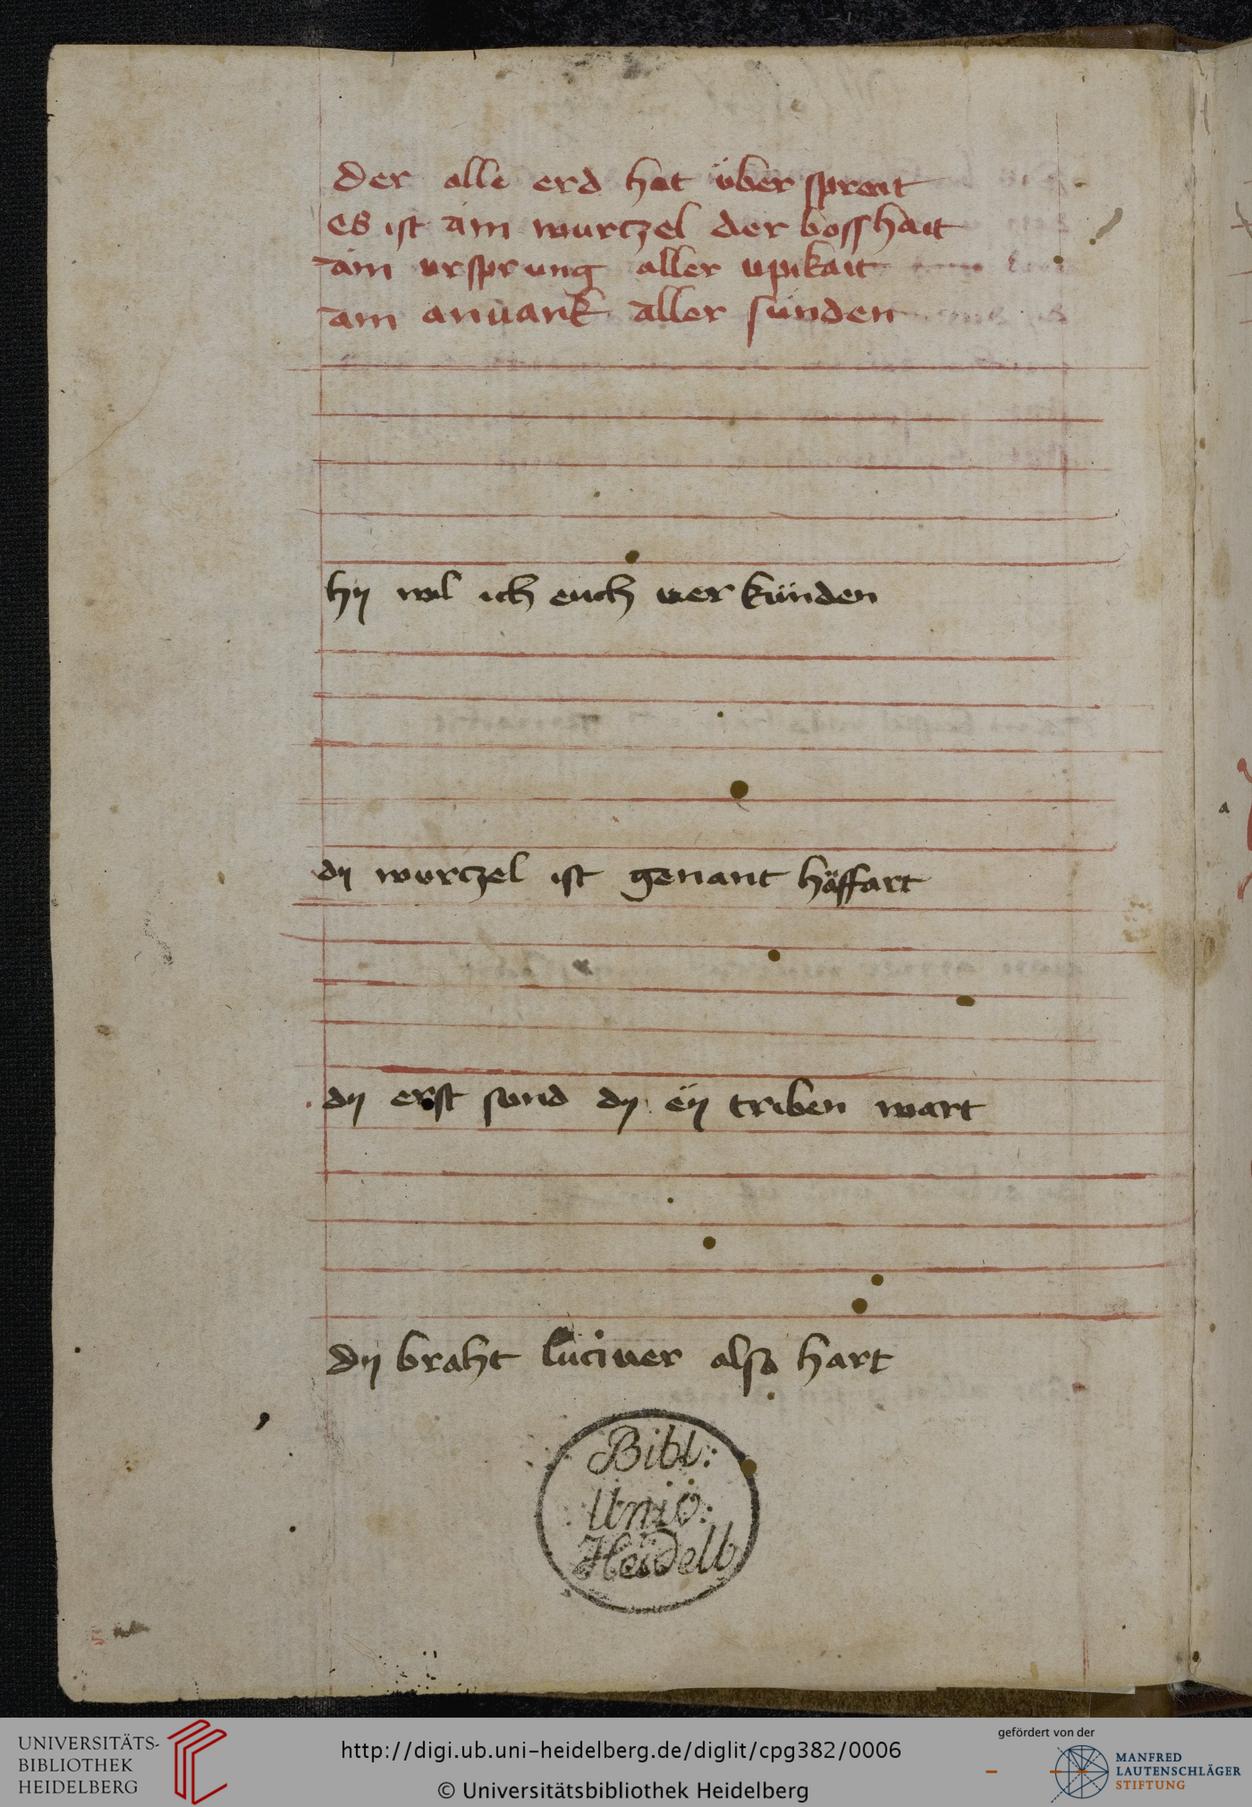 der alle erd hat über sprait
es ist ain wurczel der bosshait
ain ursprung aller upikait
ain anuank aller sünden
hy wil ich euch uer künden
dy wurczel ist genant häffart
dy erst sund dy ëy triben wart
dy braht luciuer also hart
Bibl:
Univ:
Heidelb
UNIVERSITÄTS-
BIBLIOTHEK
HEIDELBERG
http://digi.ub.uni-heidelberg.de/diglit/cpg382/0006
© Universitätsbibliothek Heidelberg
gefördert von der
MANFRED
LAUTENSCHLÄGER
STIFTUNG